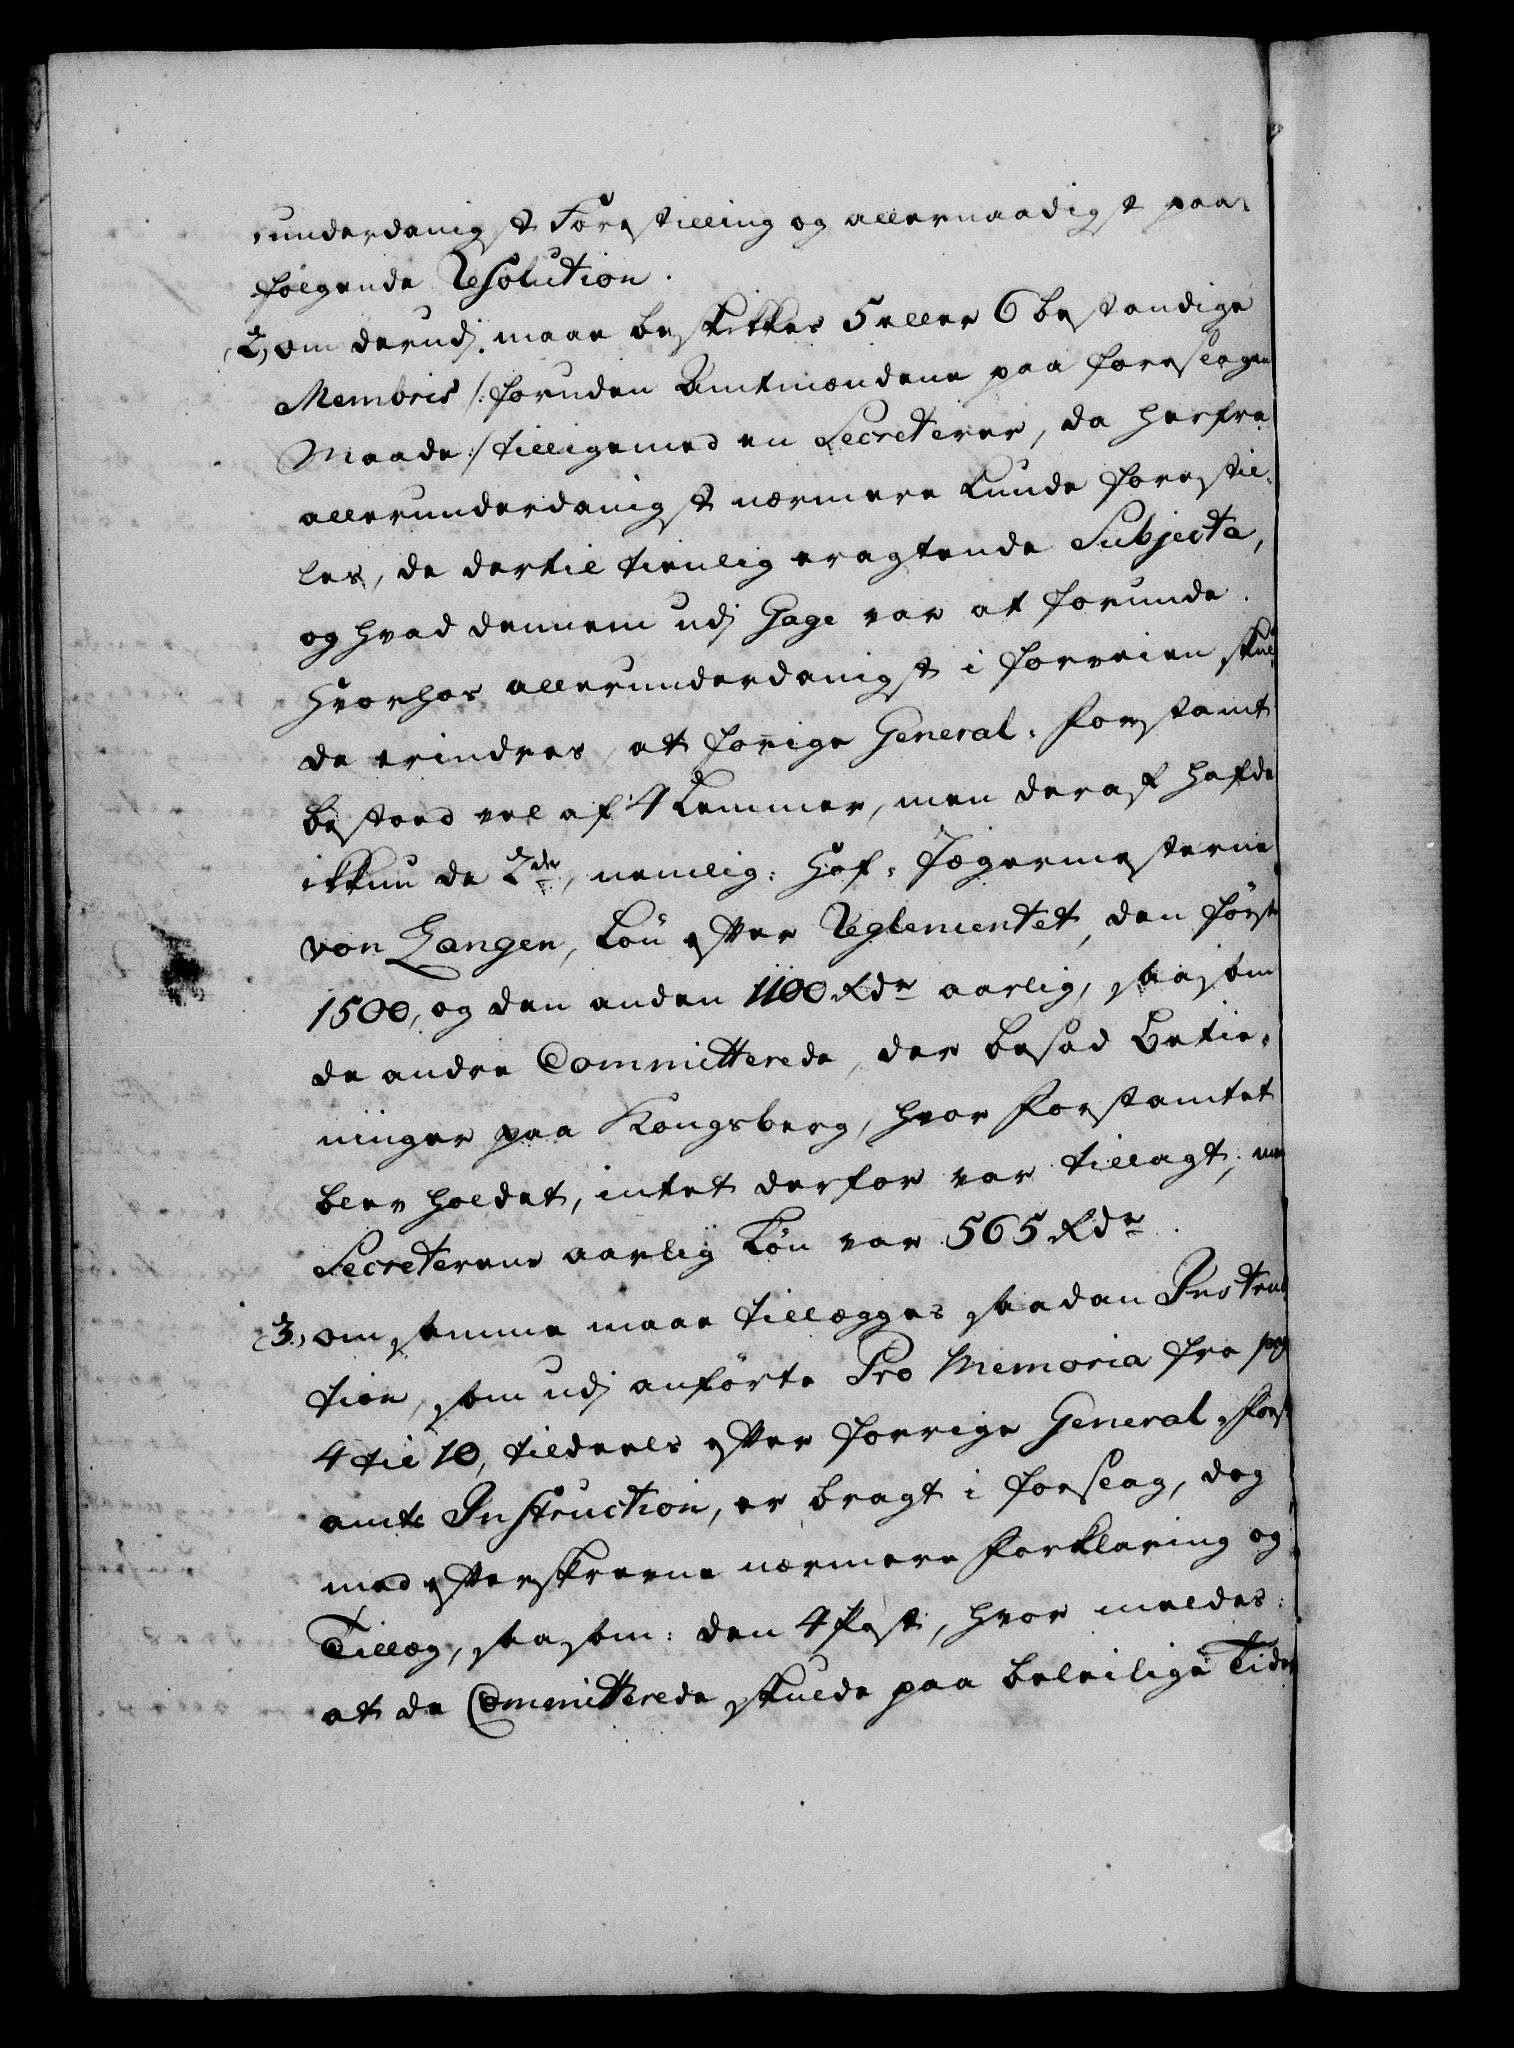 underdanigst Forestilling og allernaadigst paa-
følgende Resolution.
(2) om derudj maae beskikkes 5 eller 6 bestandige
Membris /: foruden Amtmændene paa foreslagne
Maade :/ tilligemed en Secreterer, da herfra
allerunderdanigst nærmere kunde forestil-
les, de dertil tienlig eragtende Subjecta,
og hvad dennem udj Gage var at forunde.
Hvorhos allerunderdanigst i forveien skul-
de erindres, at forige General-Forstamt
bestoed vel af 4 Lemmer, men deraf hafde
ikkun de 2de, nemlig: Hof-Jægermesterne
von Langen, Løn efter Reglementet, den første
1500, og den anden 1100 Rdr aarlig, saasom
de andre Committerede, der besad Betie-
ninger paa Kongsberg, hvor Forstamtet
blev holdet, intet derfor var tillagt; men
Secreterens aarlig Løn var 565 Rdr.
(3.) om samme maae tillægges saadan Instruc-
tion, som udj anførte Pro Memoria fra post
4 til 10, tildeels efter forrige General-Forst-
amts Instruction, er bragt i forslag, dog
med efterskrevne nærmere Forklaring og
Tillæg, saasom: den 4 Post, hvor meldes:
at de Committerede skulde paa beleilige Tider